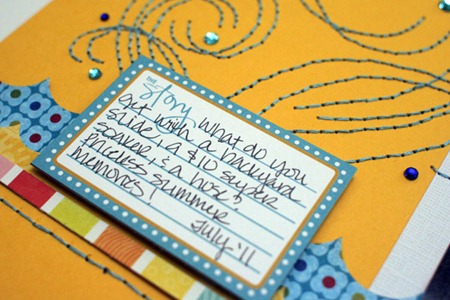 THE
Story What do you
get with a backyard
slide, a $10 super
soaker, & a hose?
Priceless summer
memories!
July '11